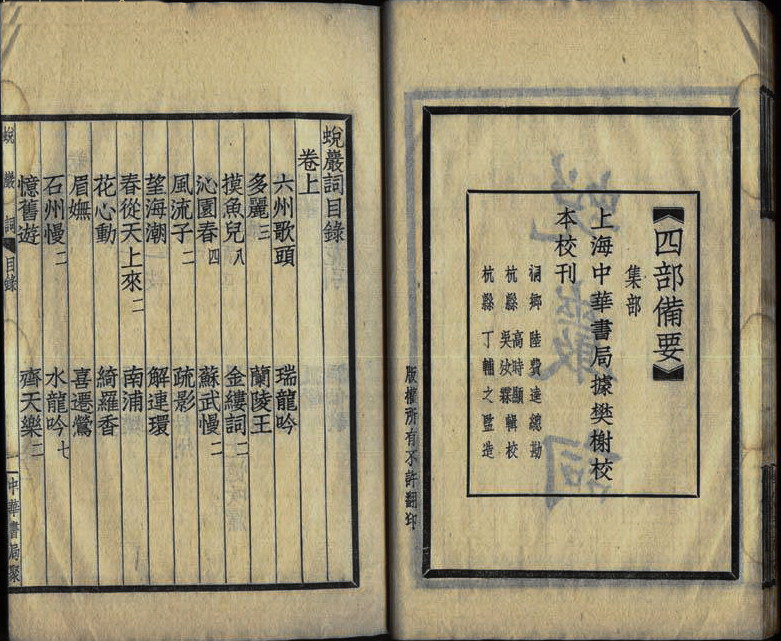 【四部備要】
集部
上海中華書局據樊榭校
本校刊
桐鄉 陸費逵總勘
杭縣 高時顯輯校
杭縣 吳汝霖輯校
杭縣 丁輔之監造
版權所有不許翻印
蛻巖詞
蛻巖詞目錄
卷上
六州歌頭 瑞龍吟
多麗三 蘭陵王
摸魚兒八 金縷詞二
沁園春四 蘇武慢二
風流子二 疏影
望海潮 解連環
春從天上來二 南浦
花心動 綺羅香
眉嫵 喜遷鶯
石州慢二 水龍吟七
憶舊遊 齊天樂二
蛻巖詞 目錄 中華書局聚